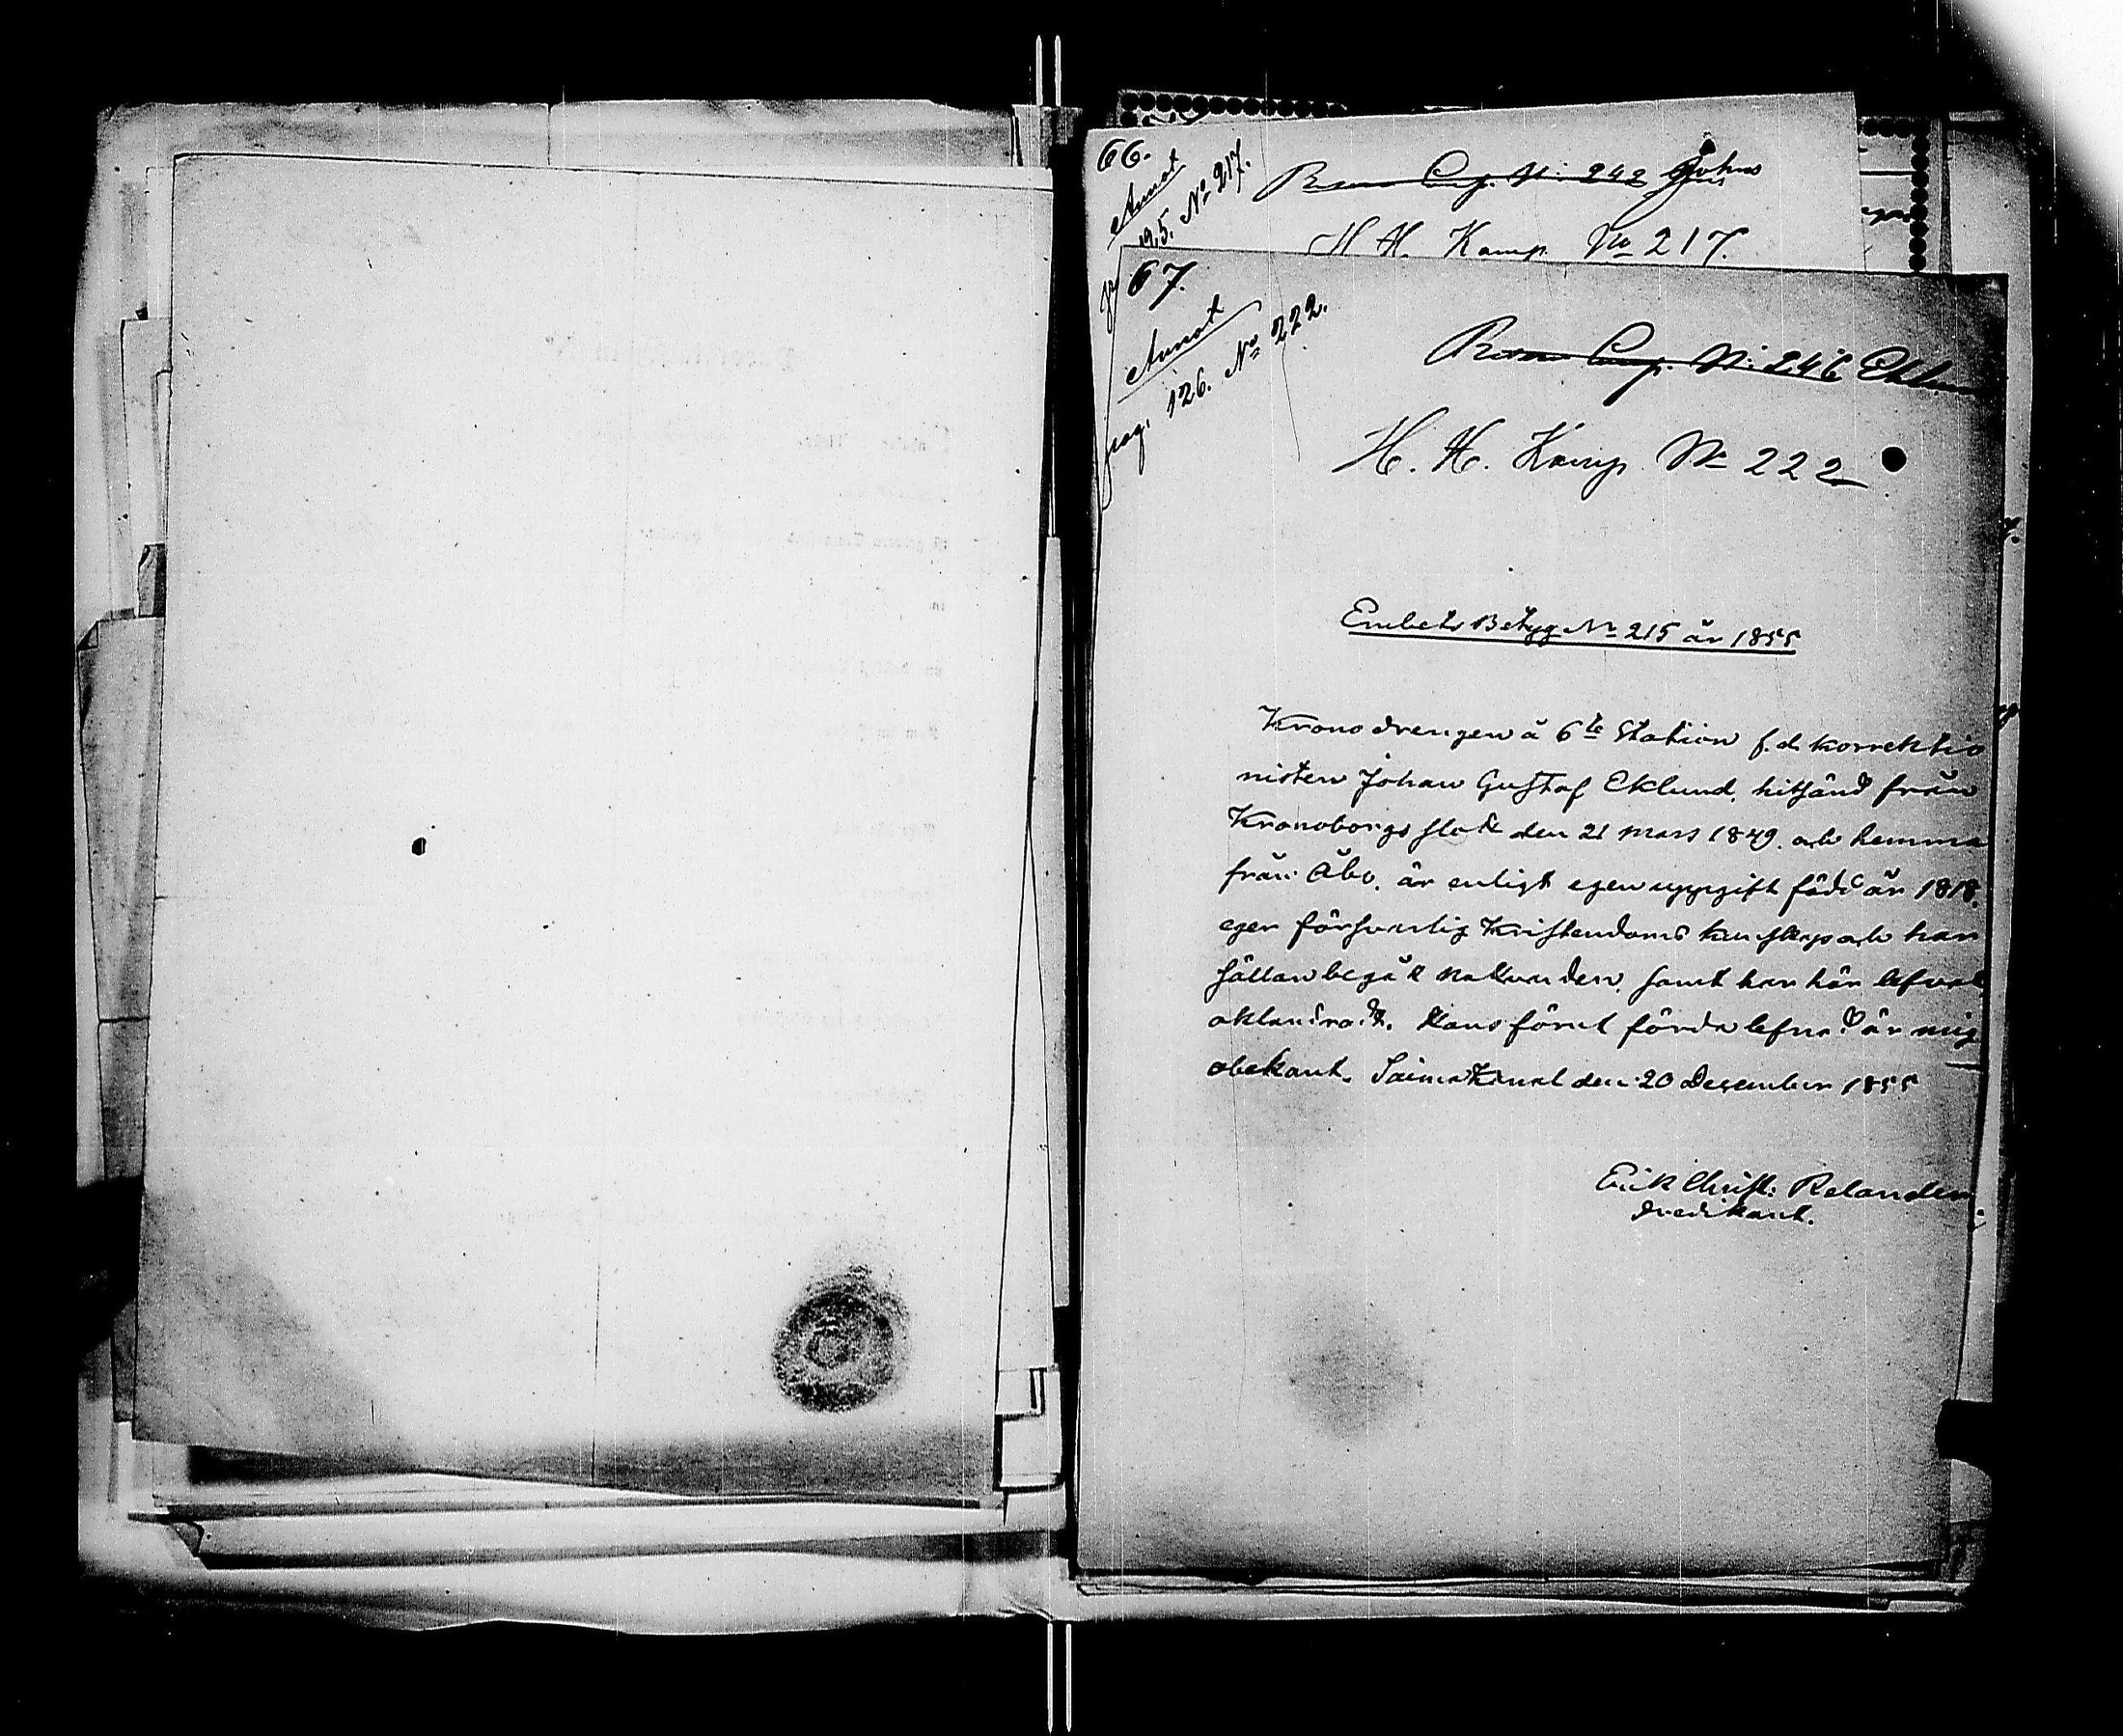 66.
Annot
195. No 217.
Comp. No 242 Johns
H. H. Komp. No 217.
67.
Annot
pag. 126. No 222.
Comp. No 246 Eklun
H. H. Komp. No 222
Embets Betyg No 215 år 1855
Kronodrengen å 6te Station f. d. korrektio
nisten Johan Gustaf Eklund, hitsänd från
Kronoborgs slott den 21 Mars 1849. och hemma
från Åbo, är enligt egen uppgift född år 1818.
eger försvarlig Kristendoms kunskap och har
sällan begått nattvarden, samt har här lefvat
oklandradt. Hans förut förda lefnad är mig
obekant. Saima Kanal den 20 December 1855
Erik Christ: Relander
Predikant.